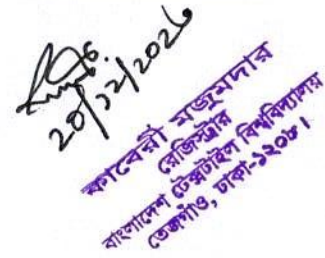 20/12/2026
কাবেরী মজুমদার
রেজিস্ট্রার
বাংলাদেশ টেক্সটাইল বিশ্ববিদ্যালয়
তেজগাঁও, ঢাকা-১২০৮।